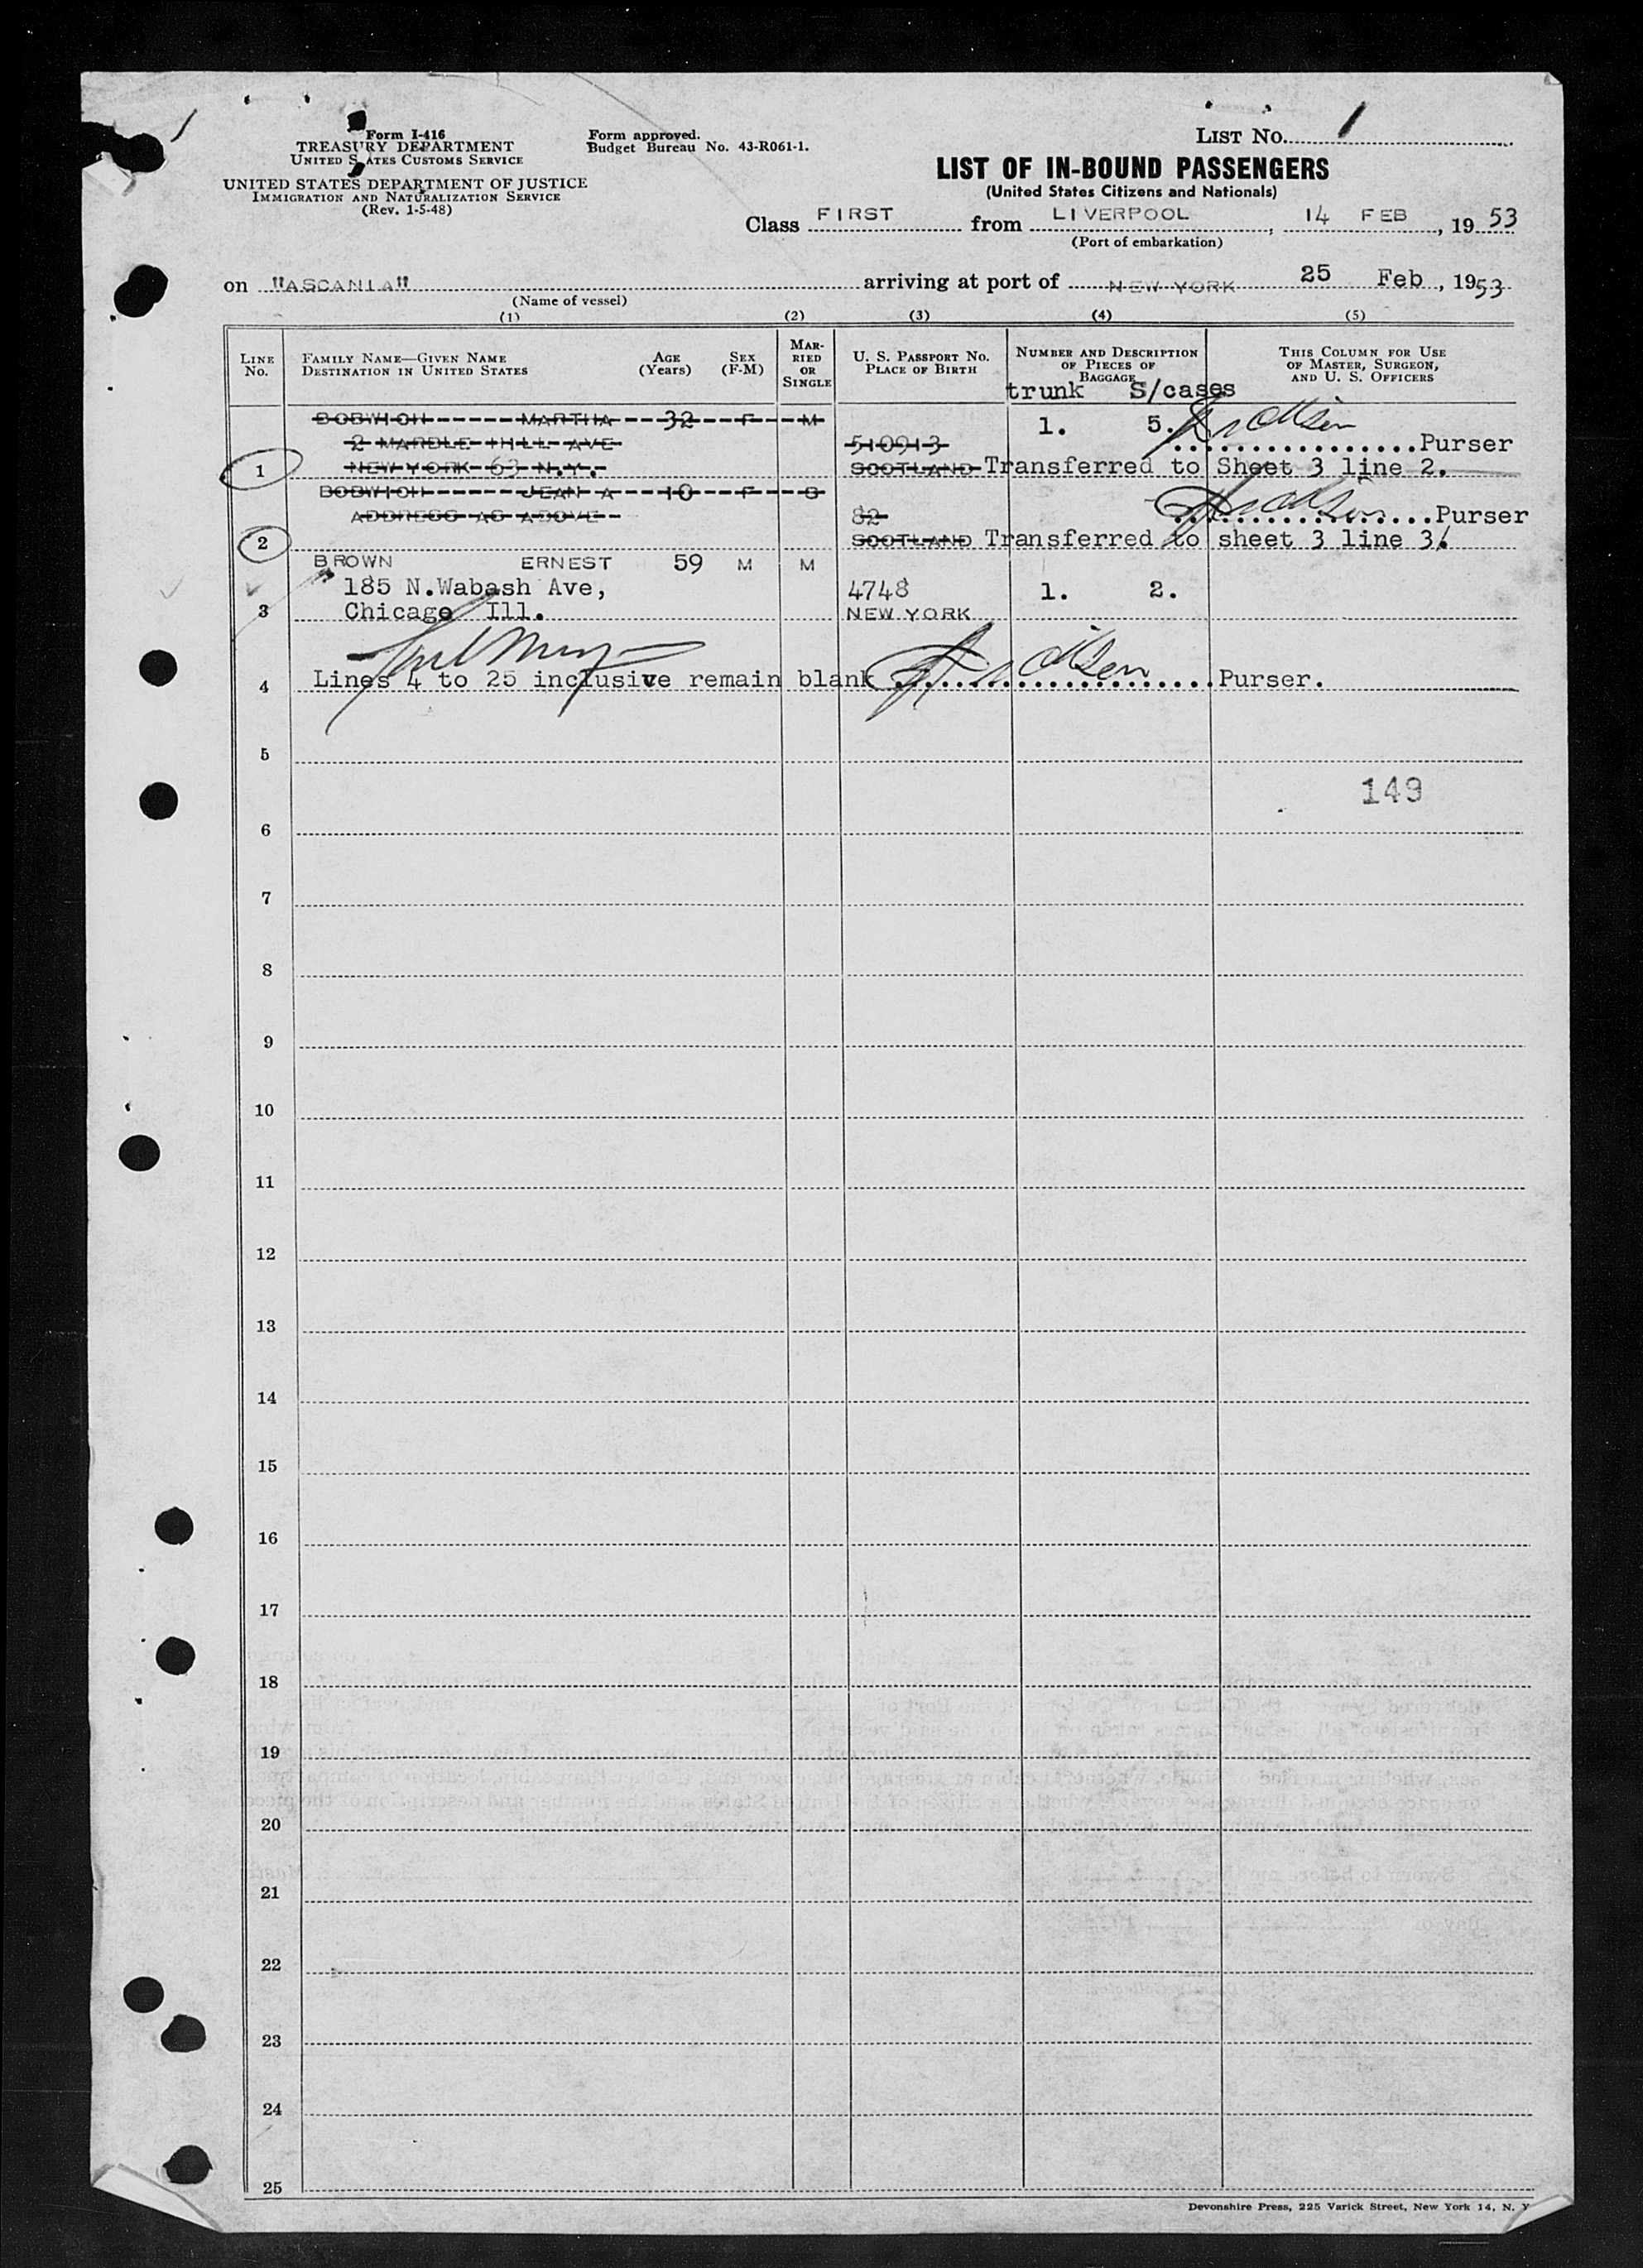 Form I-416
TREASURY DEPARTMENT
UNITED STATES CUSTOMS SERVICE
UNITED STATES DEPARTMENT OF JUSTICE
IMMIGRATION AND NATURALIZATION SERVICE
(Rev. 1-5-48)
Form approved.
Budget Bureau No. 43-R061-1.
LIST No. 1
LIST OF IN-BOUND PASSENGERS
(United States Citizens and Nationals)
Class FIRST from LIVERPOOL, 14 FEB, 1953
(Port of embarkation)
on "ASCANIA" arriving at port of NEW YORK 25 Feb, 1953
(Name of vessel)
(1) (2) (3) (4) (5)
LINE No.
FAMILY NAME—GIVEN NAME
DESTINATION IN UNITED STATES
AGE (Years)
SEX (F-M)
MARRIED OR SINGLE
U. S. PASSPORT NO.
PLACE OF BIRTH
NUMBER AND DESCRIPTION OF PIECES OF BAGGAGE
trunk S/cases
THIS COLUMN FOR USE OF MASTER, SURGEON, AND U. S. OFFICERS
MARTHA 32 F M 1. 5.
HILL AVE 510913 Purser
1 NEW YORK 63 N.Y. SCOTLAND Transferred to Sheet 3 line 2.
JEAN A 10 F S
ADDRESS AS ABOVE 82 Purser
2 SCOTLAND Transferred to sheet 3 line 3.
BROWN ERNEST 59 M M
185 N.Wabash Ave, 4748 1. 2.
3 Chicago Ill. NEW YORK
4 Lines 4 to 25 inclusive remain blank Purser.
5
149
6
7
8
9
10
11
12
13
14
15
16
17
18
19
20
21
22
23
24
25
Devonshire Press, 225 Varick Street, New York 14, N. Y